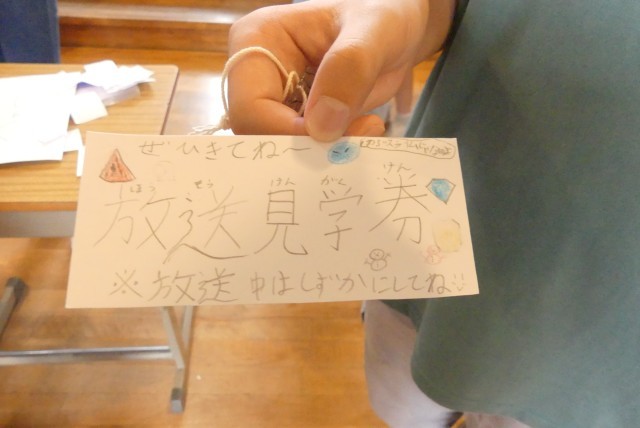 ぜひきてね～
ほう そう けん がく けん
放送見学券
※放送中はしずかにしてね